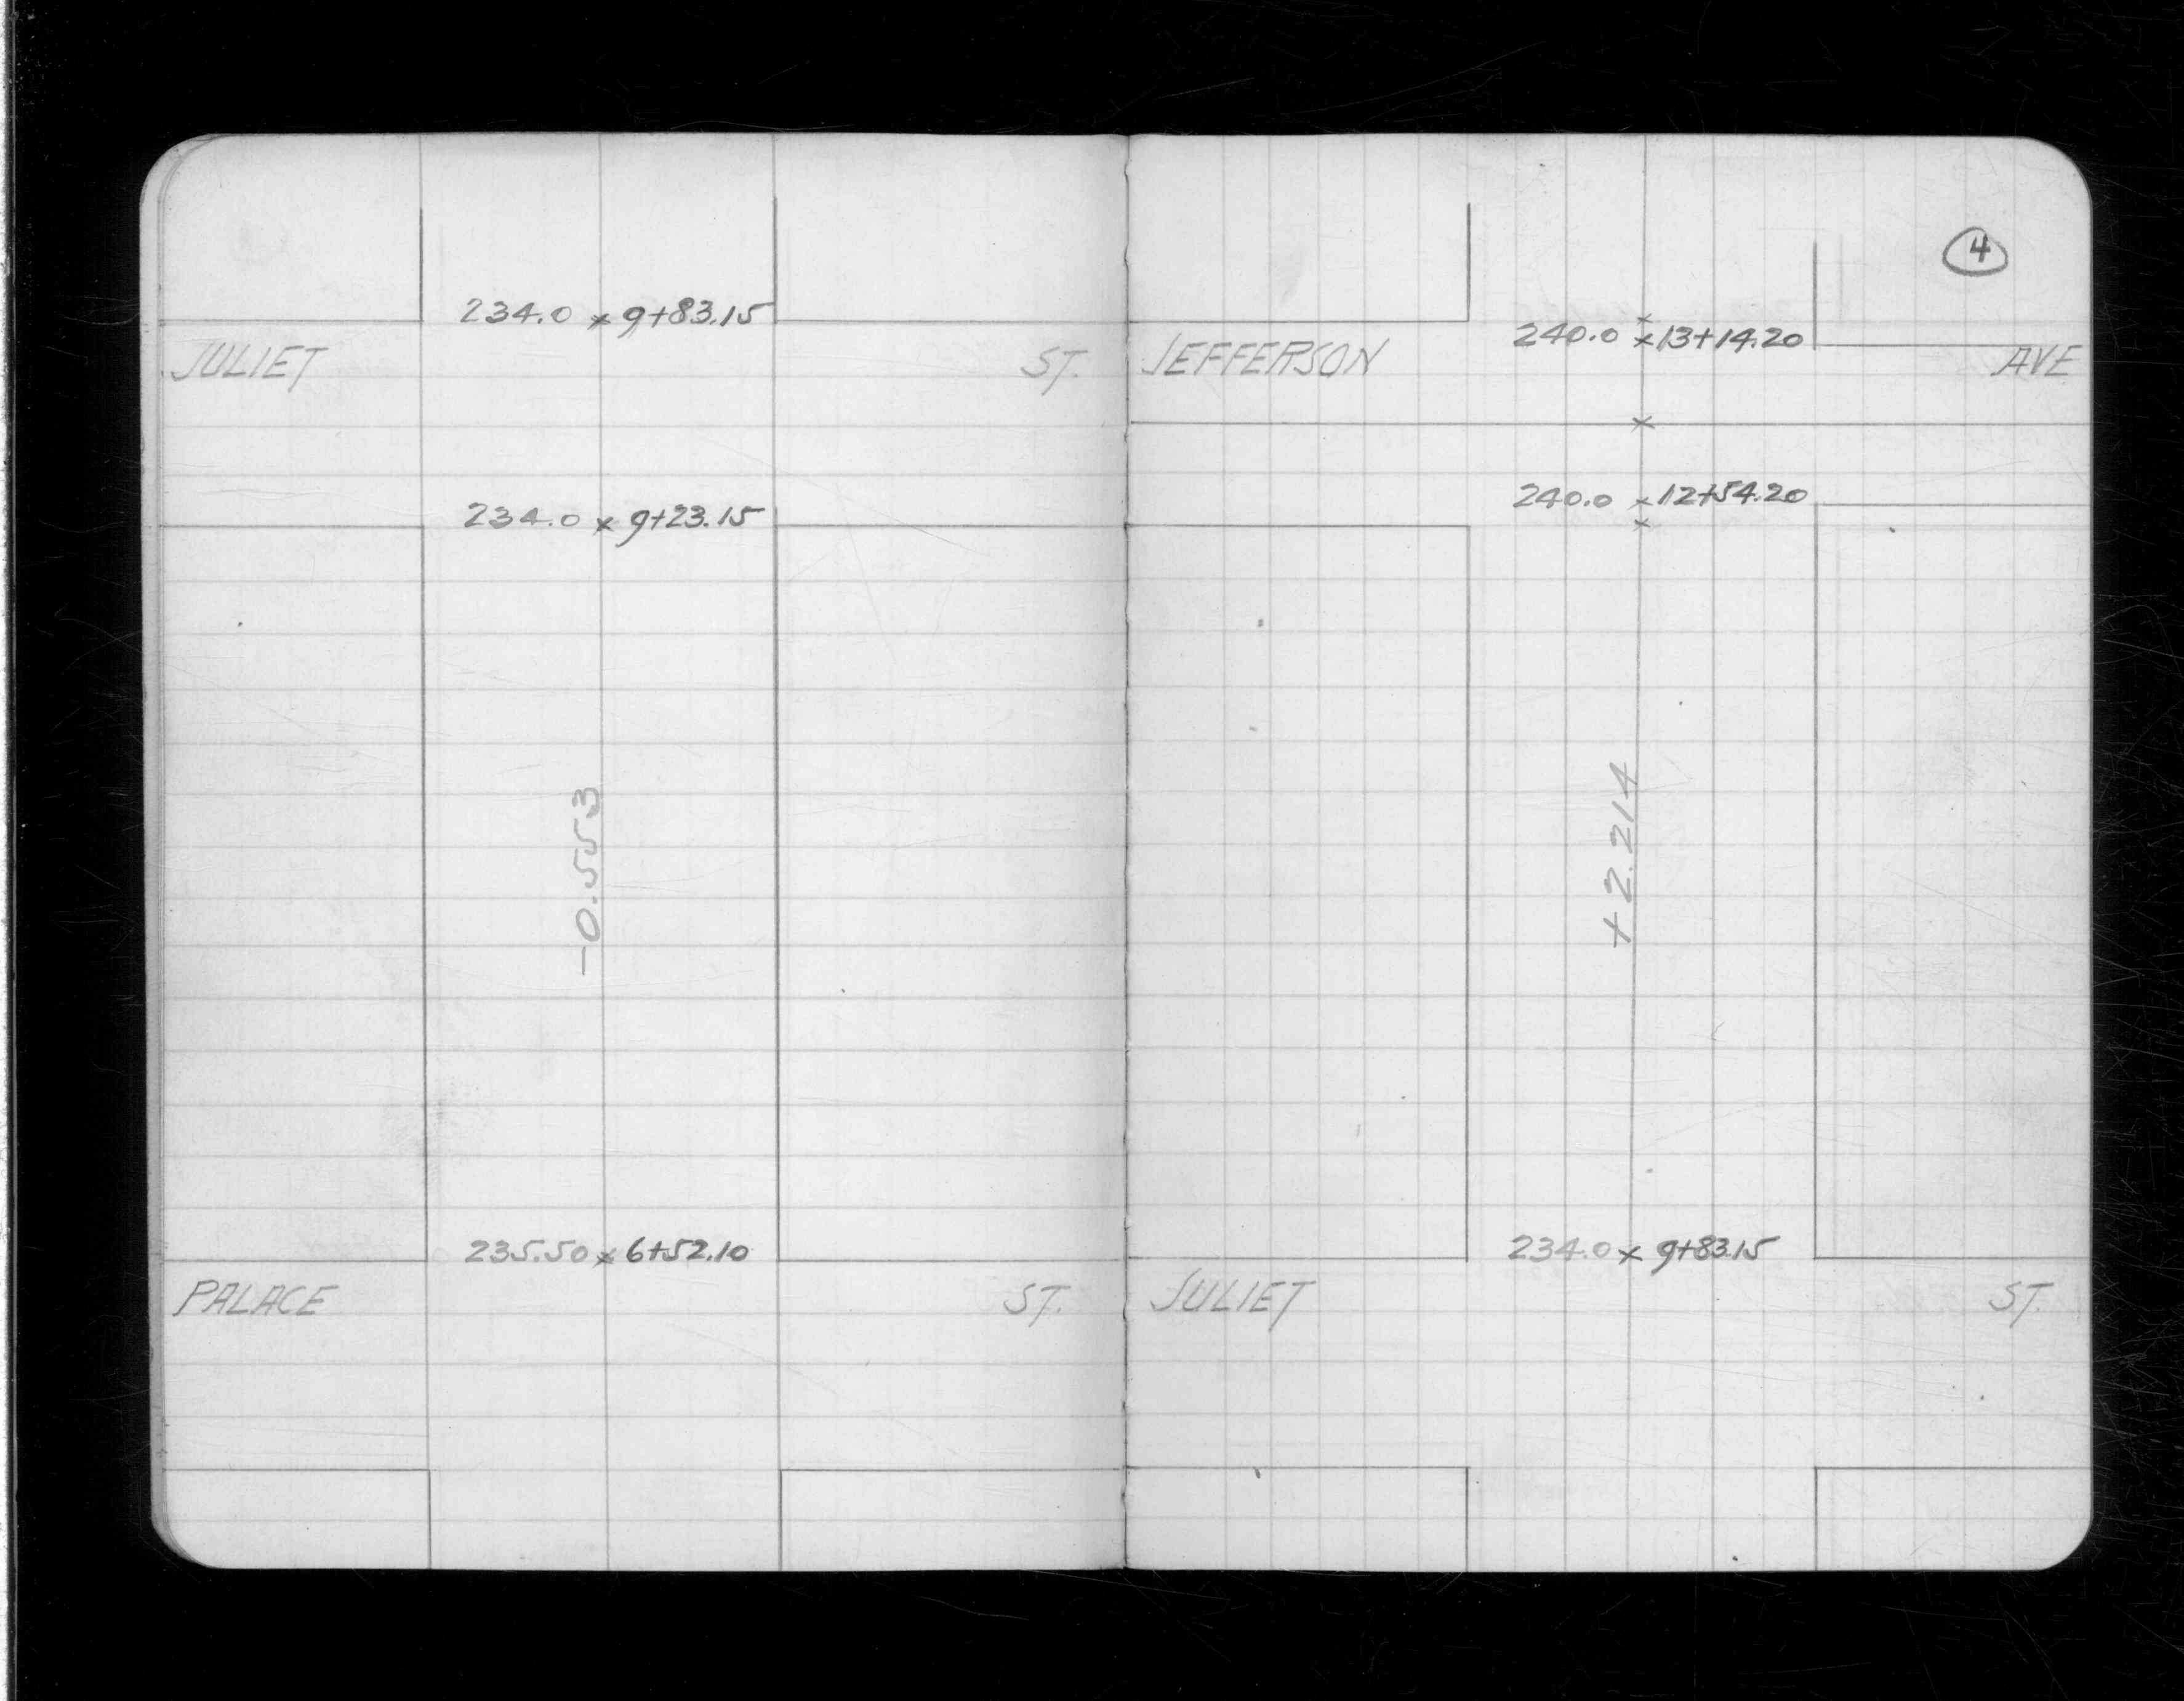 234.0 x 9+83.15
JULIET ST.
234.0 x 9+23.15
-0.553
235.50 x 6+52.10
PALACE ST.
4
240.0 x 13+14.20
JEFFERSON AVE
240.0 x 12+54.20
+2.214
234.0 x 9+83.15
JULIET ST.